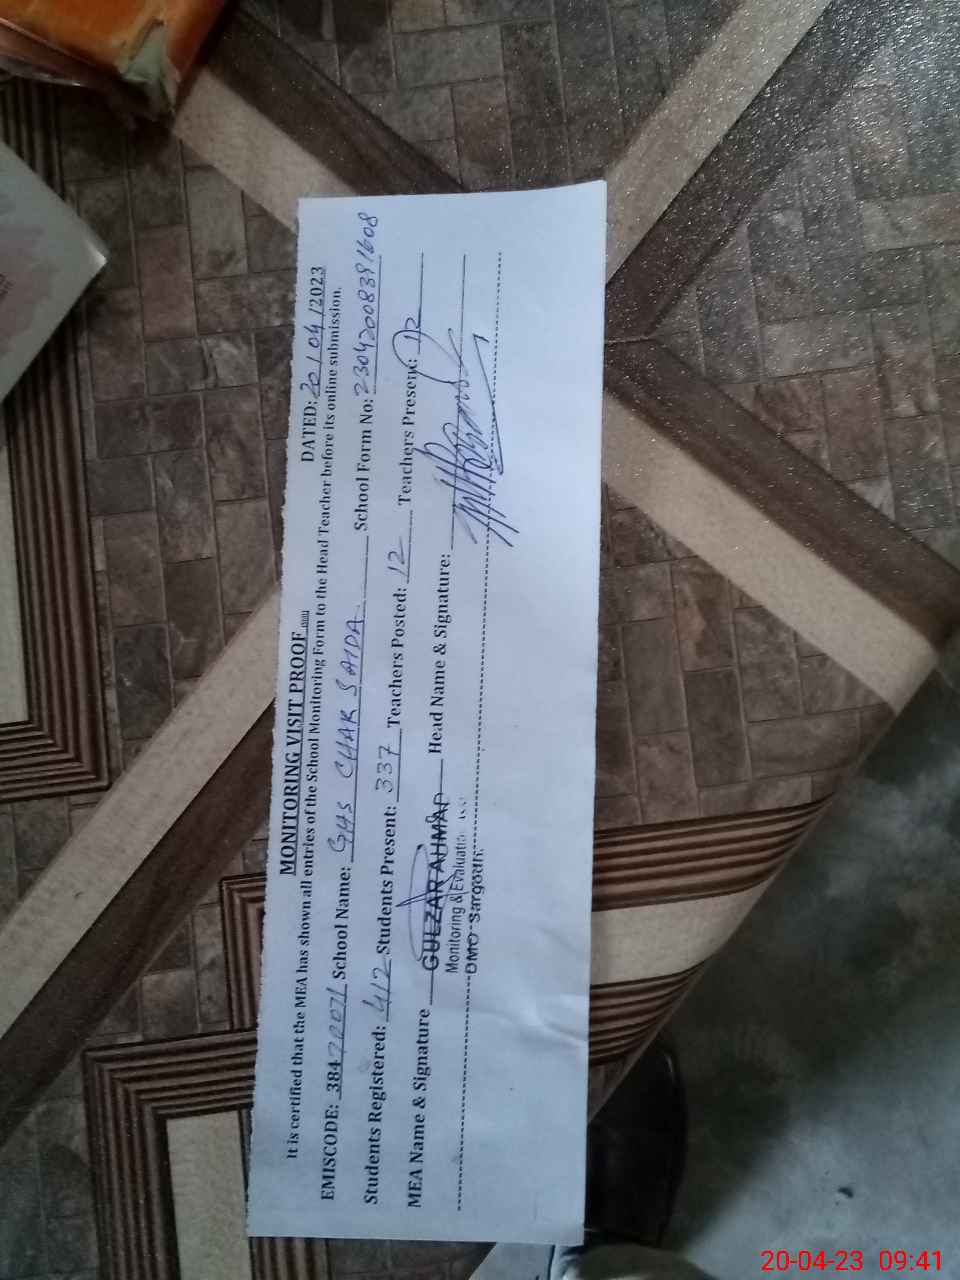 MONITORING VISIT PROOF
DATED: 20/04/2023
It is certified that the MEA has shown all entries of the School Monitoring Form to the Head Teacher before its online submission.
EMISCODE: 38420071 School Name: GHS CHAK SAIDA School Form No: 23042008391608
Students Registered: 412 Students Present: 337 Teachers Posted: 12 Teachers Present: 12
MEA Name & Signature GULZAR AHMAD Head Name & Signature:
Monitoring & Evaluation
DMO Sargodha
20-04-23 09:41